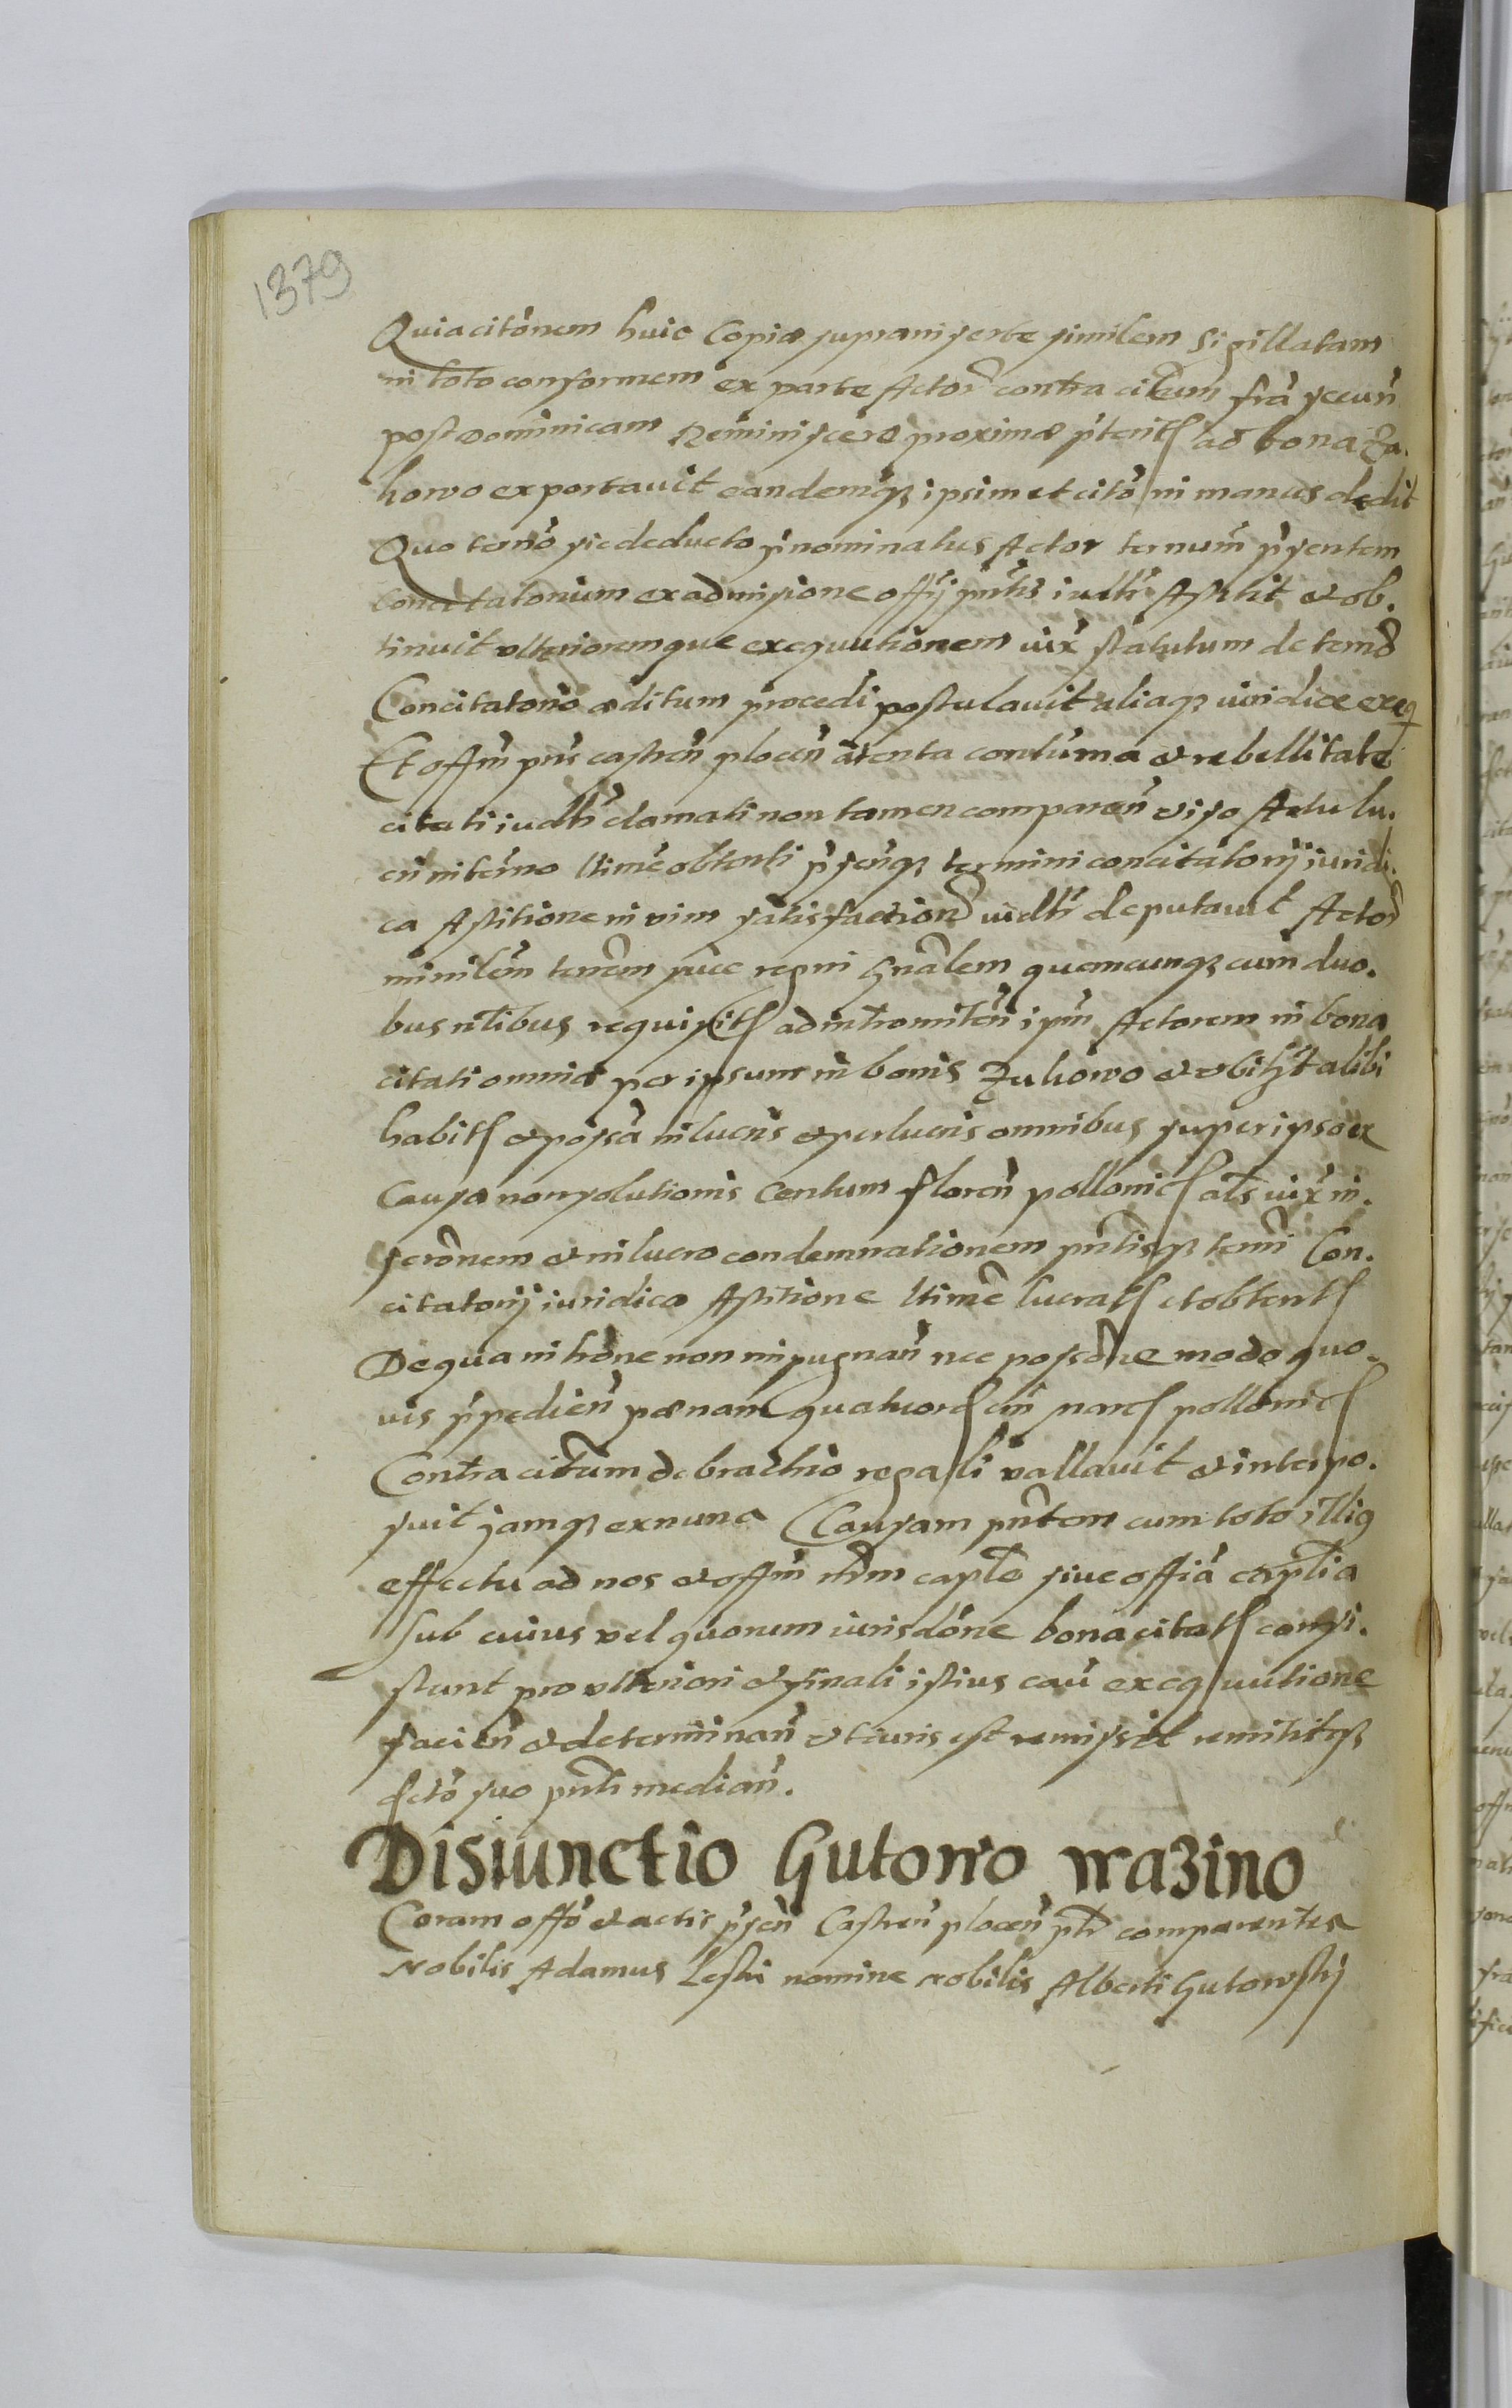 1379
Quia citõnem huic Copiæ suprainserte similem Sigillatam
in toto conformem ex parte Actor contra citum fr̃a secun
post Dominicam Reminiscere proximæ p̃terits ad bona Zu.
howo exportavit eandemq; ipsimet cito in manus dedit
Quo termo sic deducto p̃nominatus Actor termum p̃sentem
Concitatorium ex admissione officij p̃ntis iudtr Astitit et ob.
tinuit ulterioremque exequutionem iux statutum de termo
Concitatorio æditum procedi postulavit aliaq; iuridice exeq
Et offm p̃ns castren plocen atenta contuma et rebellitate
citati iudtr clamati non tamen comparen viso Actu lu.
cri in termo ltime obtenti p̃senq; termini concitatorij iuridi.
ca Astitione in vim satisfaction iudtr deputavit Actor
minilem terrem sive regni Gnalem quemcunq; cum duo.
bus nlibus requisits ad intromiten ipm Actorem in bona
citati omnia per ipsum in bonis Zuhowo et ubilzt alibi
habits et possa in lucris et per lucris omnibus super ipso ex
Causa non solutionis Centum floren pollonics als iux in.
scronem et in lucro condemnationem p̃ntisq; termi Con.
citatorij iuridica Astitione ltime lucrats et obtents
De qua introne non impugnan nec possore modo quo.
vis p̃pedien pænam quatuords cim marcs pollonics
Contra citum de brachio regali vallavit et interpo.
suit jamq; ex nunc Causam p̃ntem cum toto illiq
effectu ad nos et offm nrm caple sive offia caplia
Sub cuius vel quorum iurisdone bona citats consi.
stunt pro ulteriori et finali istius cau exequutione
facien et determinan ut iuris est remisit remititq;
dcto suo p̃nti median.
Disiunctio Gutowo wrazino
Coram offo et actis p̃sen Castren plocen ptr comparentes
Nobilis Adamus Leski nomine nobilis Alberti Gutowskij